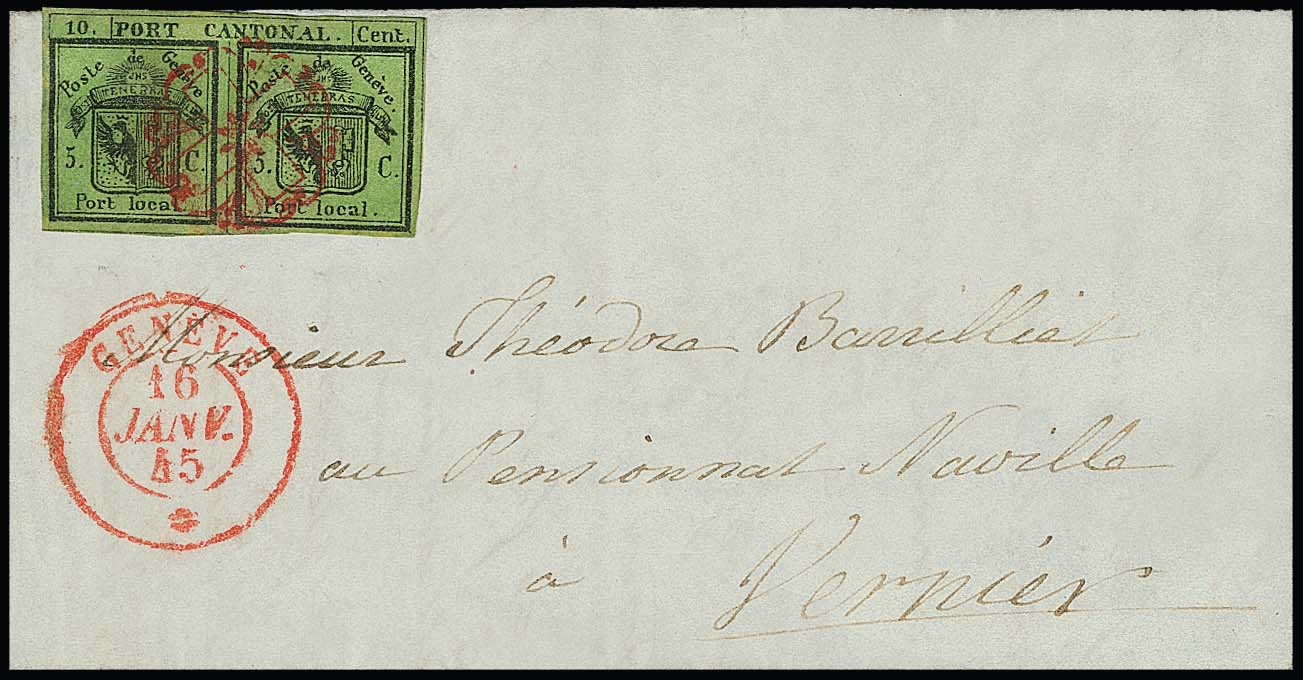 10. PORT CANTONAL. Cent.
Poste de Genève
JHS
TENEBRAS
5. C.
Port local
Poste de Genève.
JHS
TENEBRAS
5. C.
Port local.
GENÈVE
16
JANV.
45
Monsieur Théodore Barrilliet
au Pensionnat Naville
à Vernier